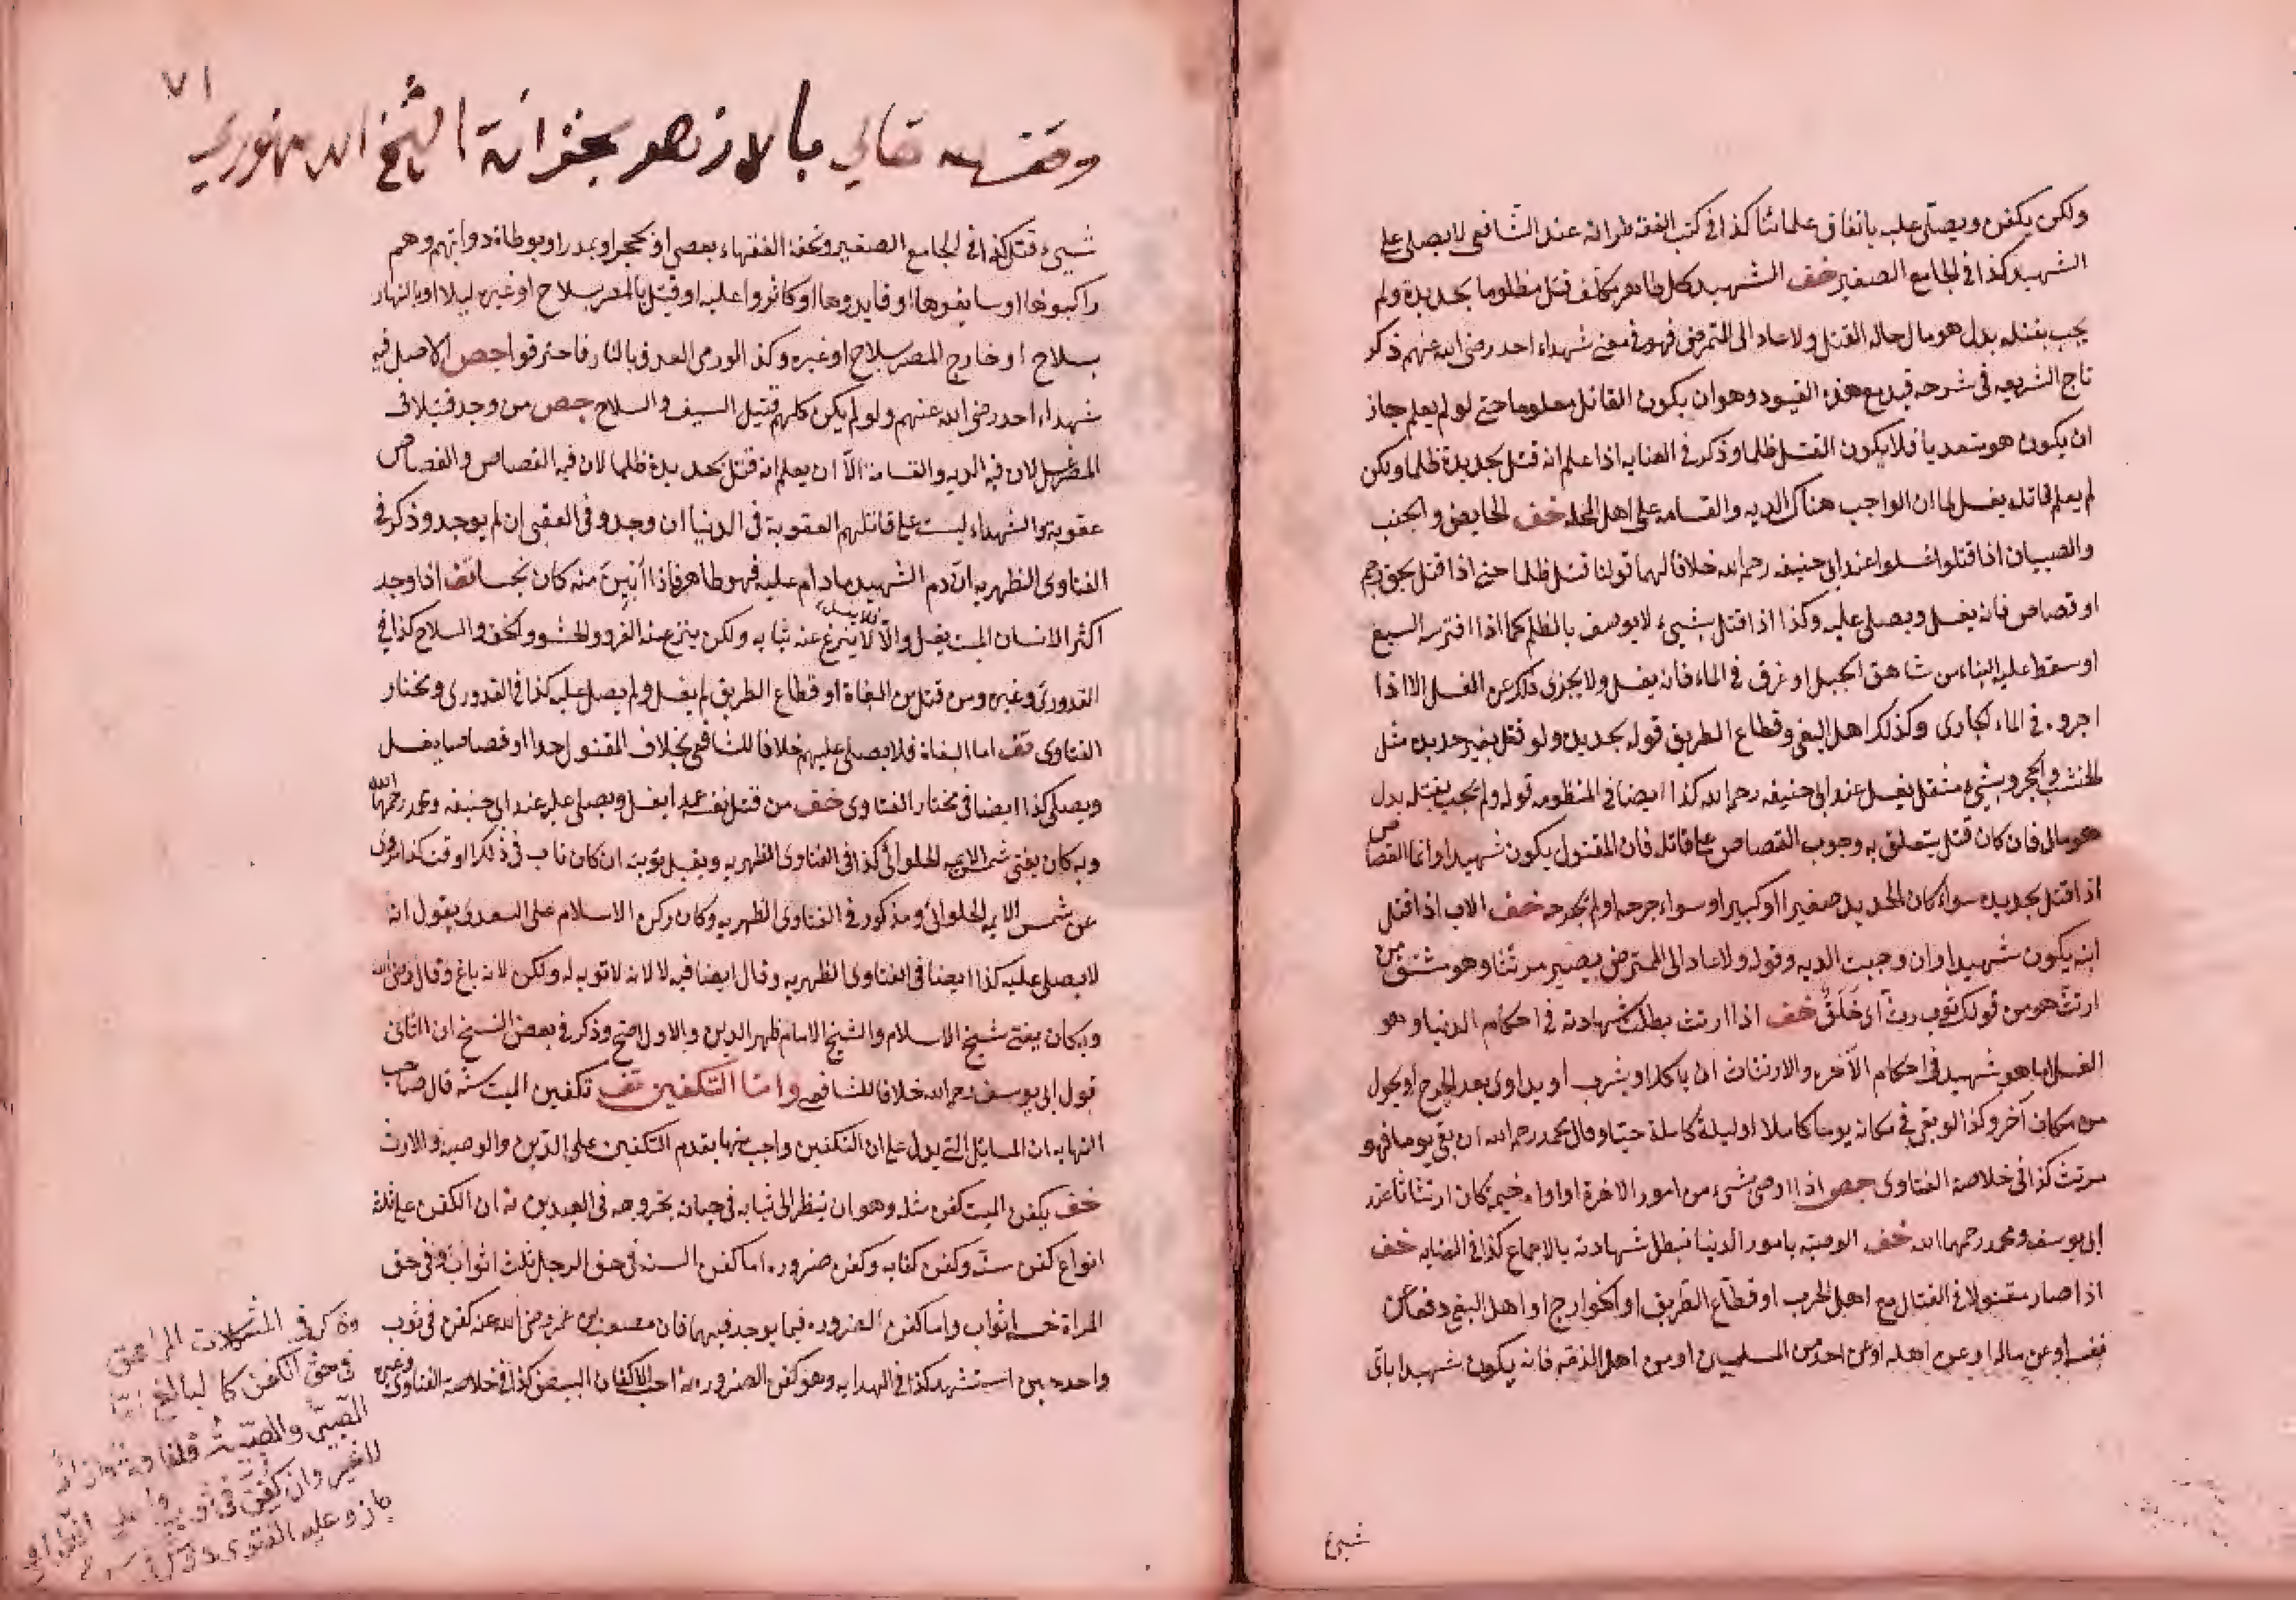 ولكن يكفن ويصلى عليه باتفاق علمائنا كذا في كتب الفقه طرا انه عند الشافعي لا يصلى على
الشهيد كذا في الجامع الصغير خف الشهيد كل طاهر مكلف قتل مظلوما بحديدة ولم
يجب بقتله بدل هو مال حاله القتل ولا عاد الى التمرض فهو في معنى شهداء احد رضى الله عنهم ذكر
تاج الشريعه في شرحه قيد مع هذه القيود وهو ان يكون القاتل معلوما حتى لو لم يعلم جاز
ان يكون هو متعديا فلا يكون القتل ظلما وذكر في العنايه اذا علم انه قتل بحديدة ظلما ولكن
لم يعلم قاتله يغسل لما ان الواجب هناك الديه والقسامه على اهل المحله خف الحايض والجنب
والصبيان اذا قتلوا غسلوا عند ابي حنيفه رحمه الله خلافا لهما قولنا قتل ظلما حتى اذا قتل بحق رجم
او قصاص فانه يغسل ويصلى عليه وكذا اذا قتل بشيء لا يوصف بالظلم كما اذا افترسه السبع
او سقط عليه البناء من شاهق الجبل او غرق في الماء فانه يغسل ولا يجزى ذلك عن الغسل الا اذا
اجروه في الماء الجارى وكذلك اهل البغى وقطاع الطريق قوله بحديده ولو قتل بغير حديده مثل
الخشب والحجر وبشيء مثقل يغسل عند ابي حنيفه رحمه الله كذا ايضا في المنظومه قوله ولم يجب بقتله بدل
هو مالى فان كان قتل يتعلق به وجوب القصاص على قاتله فان المقتول يكون شهيدا وانما القصاص
اذا قتل بحديده سواء كان الحديد صغيرا او كبيرا وسواء جرحه او لم يجرحه خف الاب اذا قتل
ابنه يكون شهيدا وان وجبت الديه وقوله ولا عاد الى التمرض يصير مرتثا وهو مشتق من
ارتث هو من قولك ثوب رث اى خلق خف اذا ارتث بطلت شهادته في احكام الدنيا وهو
الغسل اما هو شهيد في احكام الآخره والارتثاث ان ياكل او يشرب او يداوى بعد الجرح او يحول
من مكان آخر وكذا لو بقى في مكانه يوما كاملا او ليلة كاملة حيا وقال محمد رحمه الله ان بقى يوما فهو
مرتث كذا في خلاصة الفتاوى جص اذا اوصى بشيء من امور الاخرة او اواه خيمه كان ارتثاثا عند
ابي يوسف ومحمد رحمهما الله خف الوصيه بامور الدنيا تبطل شهادته بالاجماع كذا في العنايه خف
اذا صار مقتولا في القتال مع اهل الحرب او قطاع الطريق او الخوارج او اهل البغي دفعا عن
نفسه او عن ماله او عن اهله او عن احد من المسلمين او من اهل الذمة فانه يكون شهيدا باى
شيء
٧١
وقف لله تعالي بالازهر بخزانة الشيخ الدمنهوري
شيء قتل كذا في الجامع الصغير وتحفة الفقهاء بعصى او بحجر او بمدر او بوطاة دوابهم وهم
راكبوها او سايقوها او قايدوها او كاثروا عليه او قتل بالمصر بسلاح او غيره ليلا او بالنهار
بسلاح او خارج المصر بسلاح او غيره وكذا لو رمى العدو بالنار فاحترقوا جص الاصل فيه
شهداء احد رضى الله عنهم ولو لم يكن كلهم قتيل السيف والسلاح جص من وجد قتيلا في
المصر غسل لان فيه الديه والقسامة الا ان يعلم انه قتل بحديدة ظلما لان فيه القصاص والقصاص
عقوبة والشهداء ليست على قاتلهم العقوبة في الدنيا ان وجد و في العقبى ان لم يوجد وذكر في
الفتاوى الظهريه ان دم الشهيد مادام عليه فهو طاهر فاذا ابين منه كان نجسا قف اذا وجد
اكثر الانسان الميت يغسل والا لا ينزع عنه ثيابه ولكن ينزع عنه الفرو والحشو والخف والسلاح كذا في
القدورى وغيره ومن قتل من البغاة او قطاع الطريق لم يغسل ولم يصل عليه كذا في القدورى ومختار
الفتاوى قف اما البغاة فلا يصلى عليهم خلافا للشافعي بخلاف المقتول حدا او قصاصا يغسل
ويصلى كذا ايضا في مختار الفتاوى خف من قتل نفسه عمدا يغسل ويصلى عليه عند ابي حنيفه ومحمد رحمهما الله
وبه كان يفتى شمس الايمه الحلوائى كذا في الفتاوى الظهريه ويقبل توبته ان كان تاب في ذلك الوقت كذا مروى
عن شمس الايمه الحلوائى ومذكور في الفتاوى الظهريه وكان ركن الاسلام على السعدى يقول انه
لا يصلى عليه كذا ايضا في الفتاوى الظهريه وقال ايضا فيه لا لانه لا توبه له ولكن لانه باغ وقال رضى الله
وبه كان يفتى شيخ الاسلام والشيخ الامام ظهر الدين والاول اصح وذكر في بعض النسخ ان الثانى
قول ابي يوسف رحمه الله خلافا للشافعي واما التكفين قف تكفين الميت سنة قال صاحب
النهايه ان المسائل التى يدل على ان التكفين واجب منها يقدم التكفين على الدين والوصية والارث
خف يكفن الميت كفن مثله وهو ان ينظر الى ثيابه في حياته بخروجه في العيدين ثه ان الكفن على ثلثة
انواع كفن سنة وكفن كفايه وكفن ضروره اما كفن السنة في حق الرجل ثلث اثواب وفي حق
المراة خمسه اثواب واما كفن الضروره فيما يوجد فيهما فان مصعب بن عمير رضى الله عنه كفن في ثوب
واحد حين استشهد كذا في الهدايه وهو كفن الضروره ثه احب الاكفان البيض كذا في خلاصة الفتاوى وغيره
وذكر في المشكلات المراهق
في حق الكفن كالبالغ
الصبى والصبية
وان كفن في ثوب
جاز وعليه الفتوى